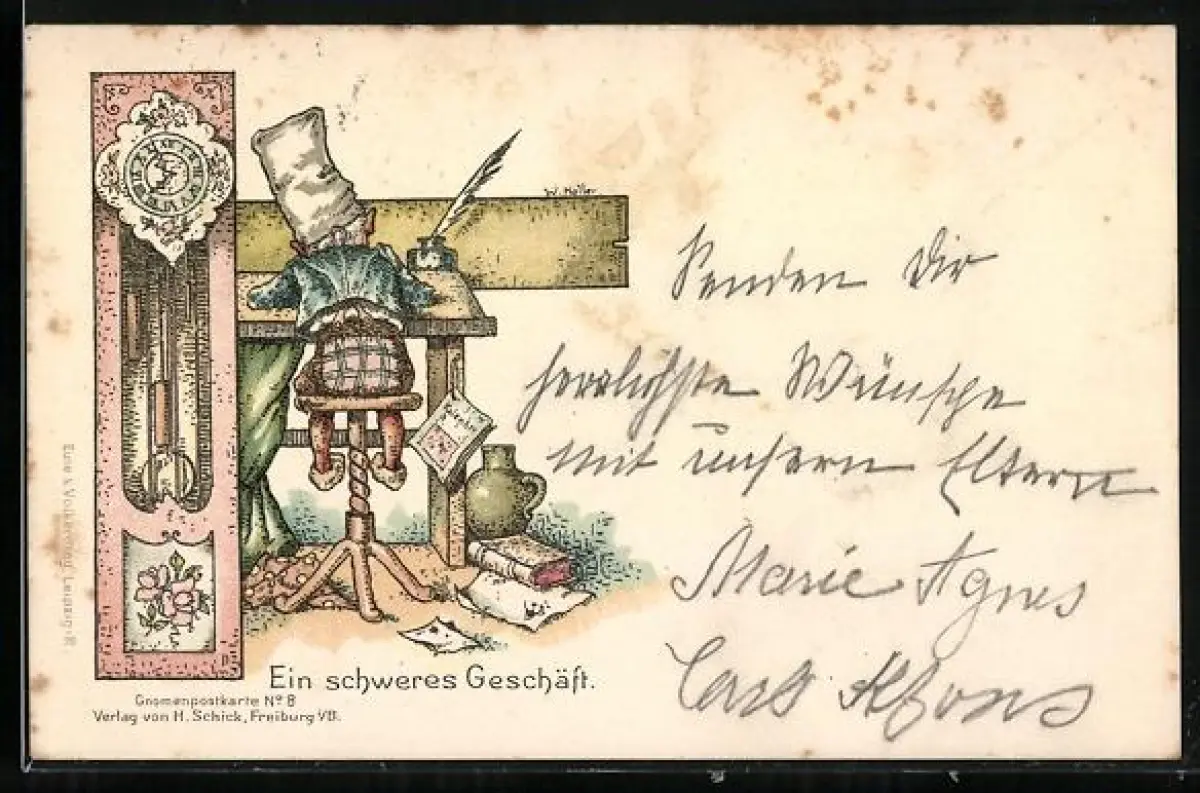 W. Haller
Senden Dir
herzlichste Wünsche
mit unsern Eltern
Marie Agnes
Carl Alfons
Ein schweres Geschäft.
Gnomenpostkarte Nº 8
Verlag von H. Schick, Freiburg i/B.
Leipzig-R.